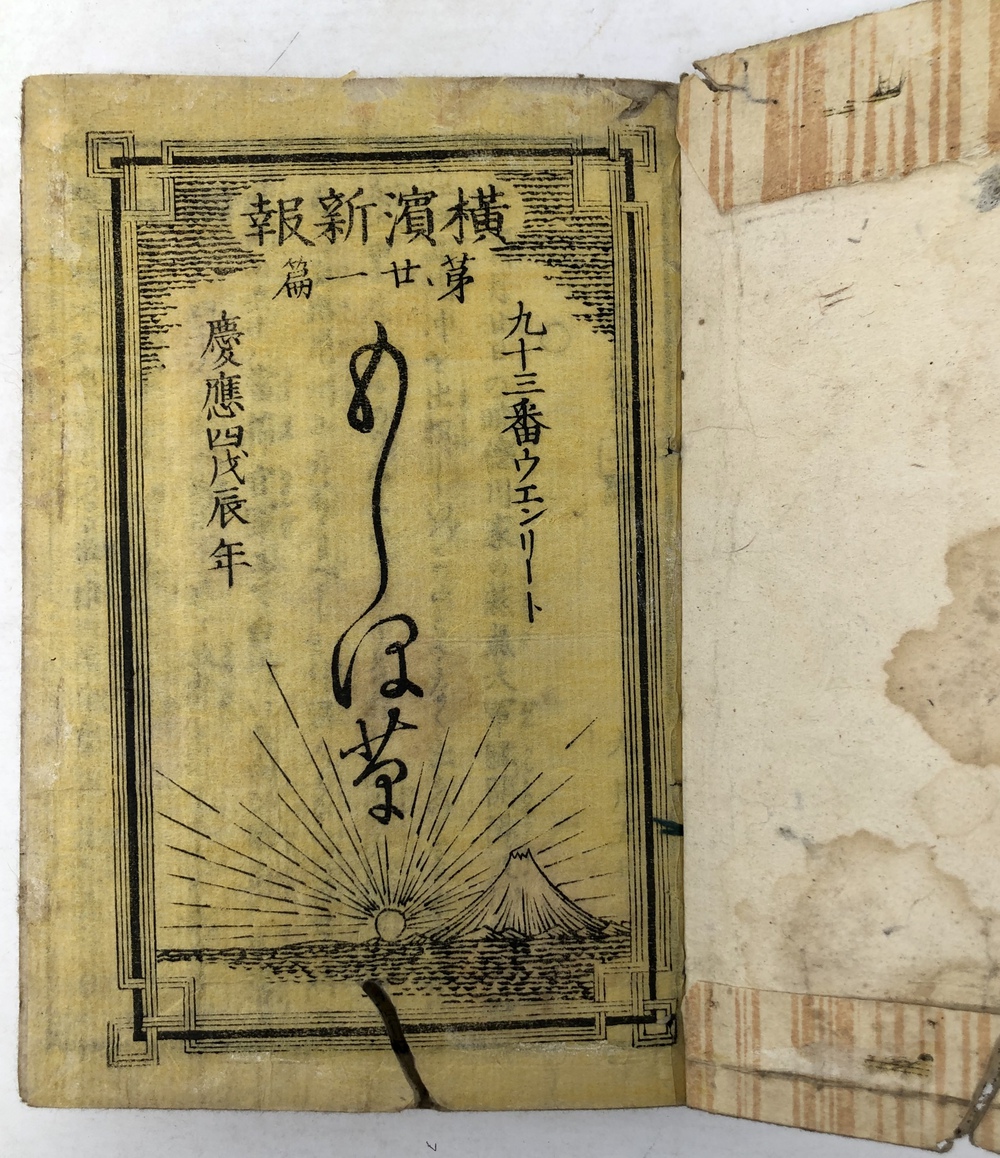 横濱新報
第廿一篇
九十三番ウエンリート
もしほ草
慶應四戊辰年